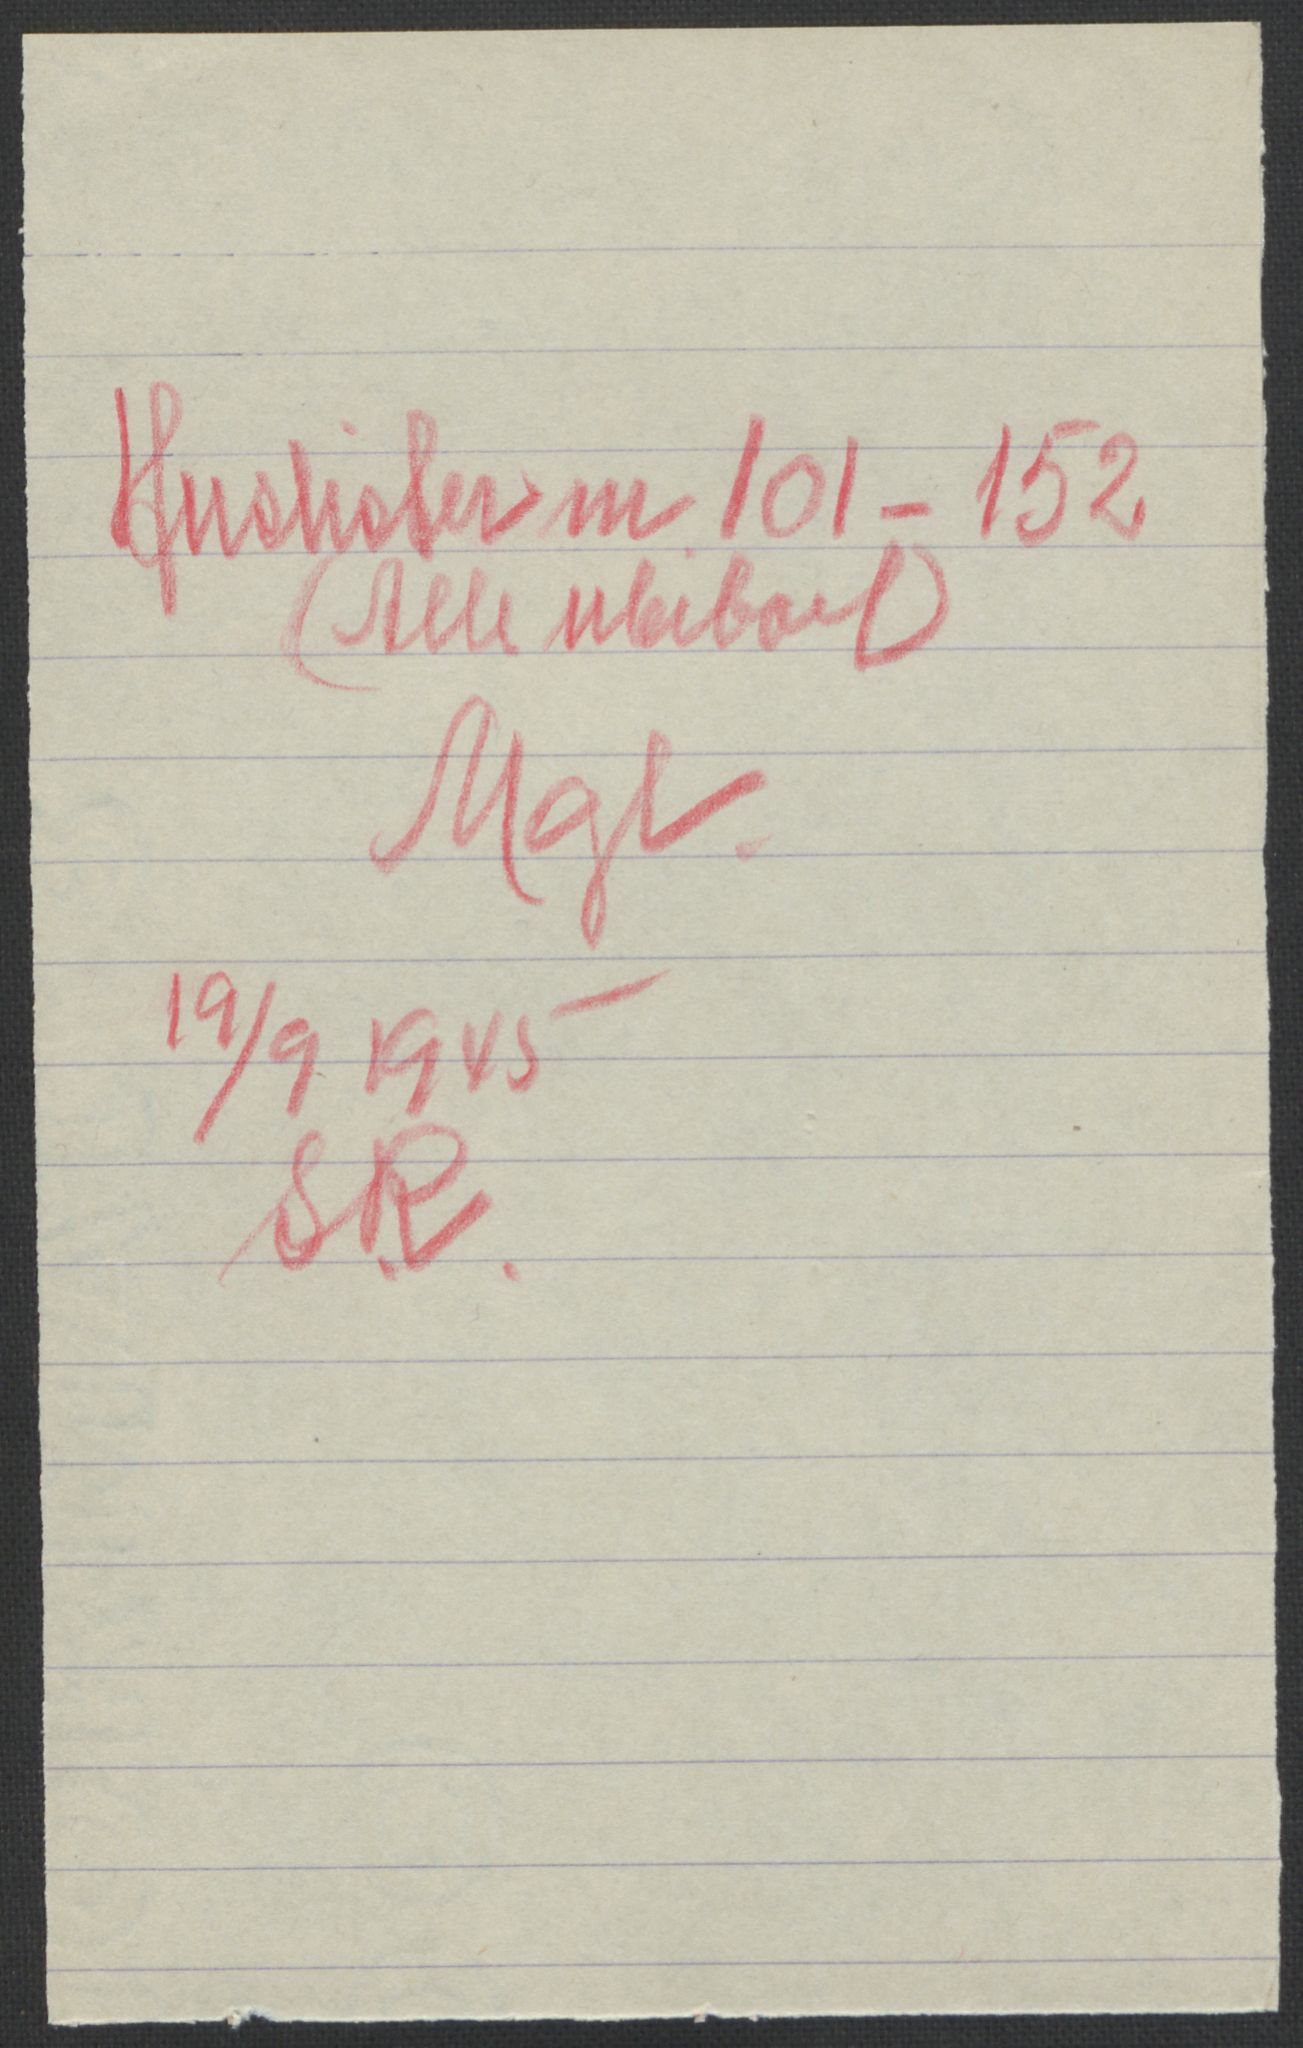 Husholer nr 101 - 152
(Alle ubeboed)
Mgl.
19/9 1945
S.R.